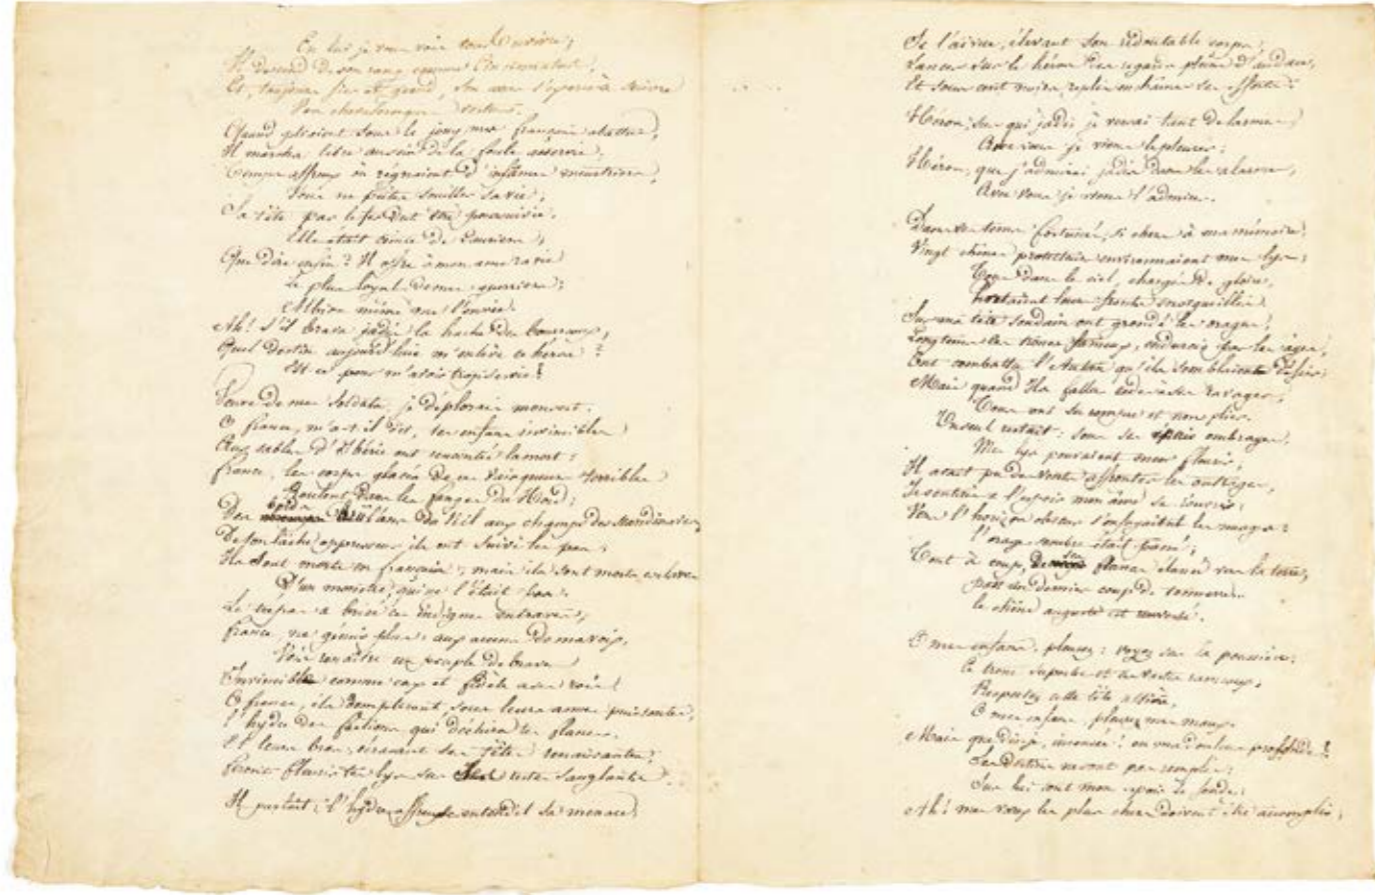 En lui je vous vois tous survivre;
Il descend de son rang comme Cincinnatus,
Et, toujours fier et grand, son âme s'épure à suivre
Vos chevaleresques vertus.
Quand ploient sous le joug mes français abattus,
Il marcha libre au sein de la foule asservie.
Temps affreux où régnaient d'infâmes meurtriers,
Vous ne pûtes souiller sa vie;
Sa tête par le fer dut être poursuivie,
Elle était ceinte de lauriers;
Que dire enfin? Il offre à mon âme ravie
Le plus loyal de mes guerriers;
Albion même me l'envie.
Ah! S'il brava jadis la hache des bourreaux,
Quel destin aujourd'hui m'enlève ce héros?
Est-ce pour m'avoir trop servie?
Veuve de mes soldats, je déplorais mon sort.
O france, m'a-t-il dit, tes enfans invincibles
Aux sables d'Ibérie ont rencontré la mort;
france, les corps glacés de ces vainqueurs terribles
Roulent dans les fanges du Nord;
Des bords l'ans du Nil aux champs des
De son lâche oppresseur ils ont suivi les pas;
Ils sont morts en français; mais ils sont morts esclaves
D'un monstre, qui ne l'était pas.
Le trépas a brisé ces indignes entraves;
france, ne gémis plus: aux accens de ma voix,
Vois renaître un peuple de braves
Invincible comme eux et fidèle à ses rois!
O france, ils dompteront, sous leurs armes puissantes,
l'hydre des factions qui déchira tes flancs,
Et leurs bras, écrasant ses têtes renaissantes,
feront fleurir tes lys sur ses restes sanglants.
Il partait; l'hydre affreuse entendit sa menace;
Je l'ai vue, élevant son redoutable corps,
Lancer sur le héros des regards pleins d'audace,
Et sous cent noirs replis enchaîner ses efforts.
Héros, sur qui jadis je versai tant de larmes,
Avec vous je viens le pleurer;
Héros, que j'admirai jadis dans les alarmes,
Avec vous je viens l'admirer.
Dans ces tems fortunés, si chers à ma mémoire,
Vingt chênes protecteurs environnaient mes lys;
Tous dans le ciel, chargés de gloire,
Portaient leurs fronts enorgueillis.
Sur ma tête soudain ont grondé les orages,
Longtems ces troncs fameux, endurcis par les âges,
Ont combattu l'Autan qu'ils semblaient défier;
Mais quand il a fallu céder à ses ravages,
Tous ont su rompre et non plier.
Un seul restait: sous ses épais ombrages,
Mes lys pouvaient encor fleurir;
Il avait pu des vents affronter les outrages,
Je sentais à l'espoir mon âme se rouvrir;
Vers l'horizon obscur s'enfuyaient les nuages:
l'orage sombre était passé;
Tout à coup, ses flancs élancé vers la terre,
par un dernier coup de tonnerre
le chêne auguste est renversé.
O mes enfans, pleurez: voyez sur la poussière
Ce tronc superbe et ces vastes rameaux;
Respectez cette tête altière,
O mes enfans, pleurez mes maux.
Mais que dis-je, insensée! en ma douleur profonde?
Ses destins ne sont pas remplis;
Sur lui tout mon espoir se fonde;
Ah! mes vœux les plus chers doivent être accomplis;